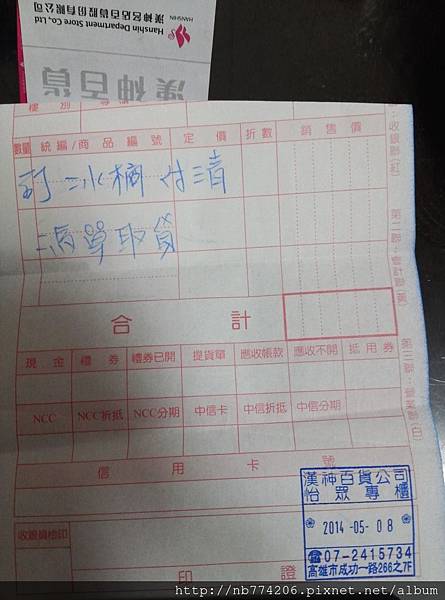 Hanshin Department Store Co., Ltd
漢神名店百貨股份有限公司
HANSHIN
漢神百貨
數量 統編/商品編號 定價 折數 銷售價
訂 冰桶 付清
憑單取貨
合計
現金 禮券 禮券已開 提貨單 應收帳款 應收不開 抵用券
NCC NCC折抵 NCC分期 中信卡 中信折抵 中信分期
信用卡號
收銀員檢印
印證
漢神百貨公司
怡眾專櫃
2014-05-08
☎07-2415734
高雄市成功一路266之7F
http://nb774206.pixnet.net/album